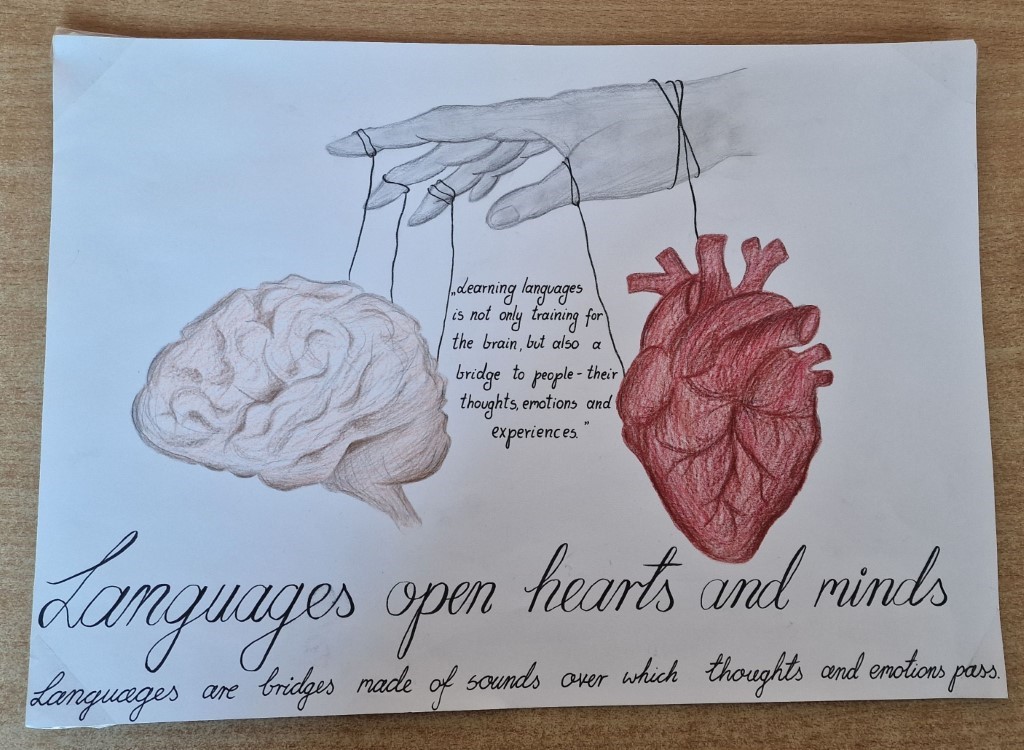 „Learning languages
is not only training for
the brain, but also a
bridge to people - their
thoughts, emotions and
experiences.”
Languages open hearts and minds
Languages are bridges made of sounds over which thoughts and emotions pass.